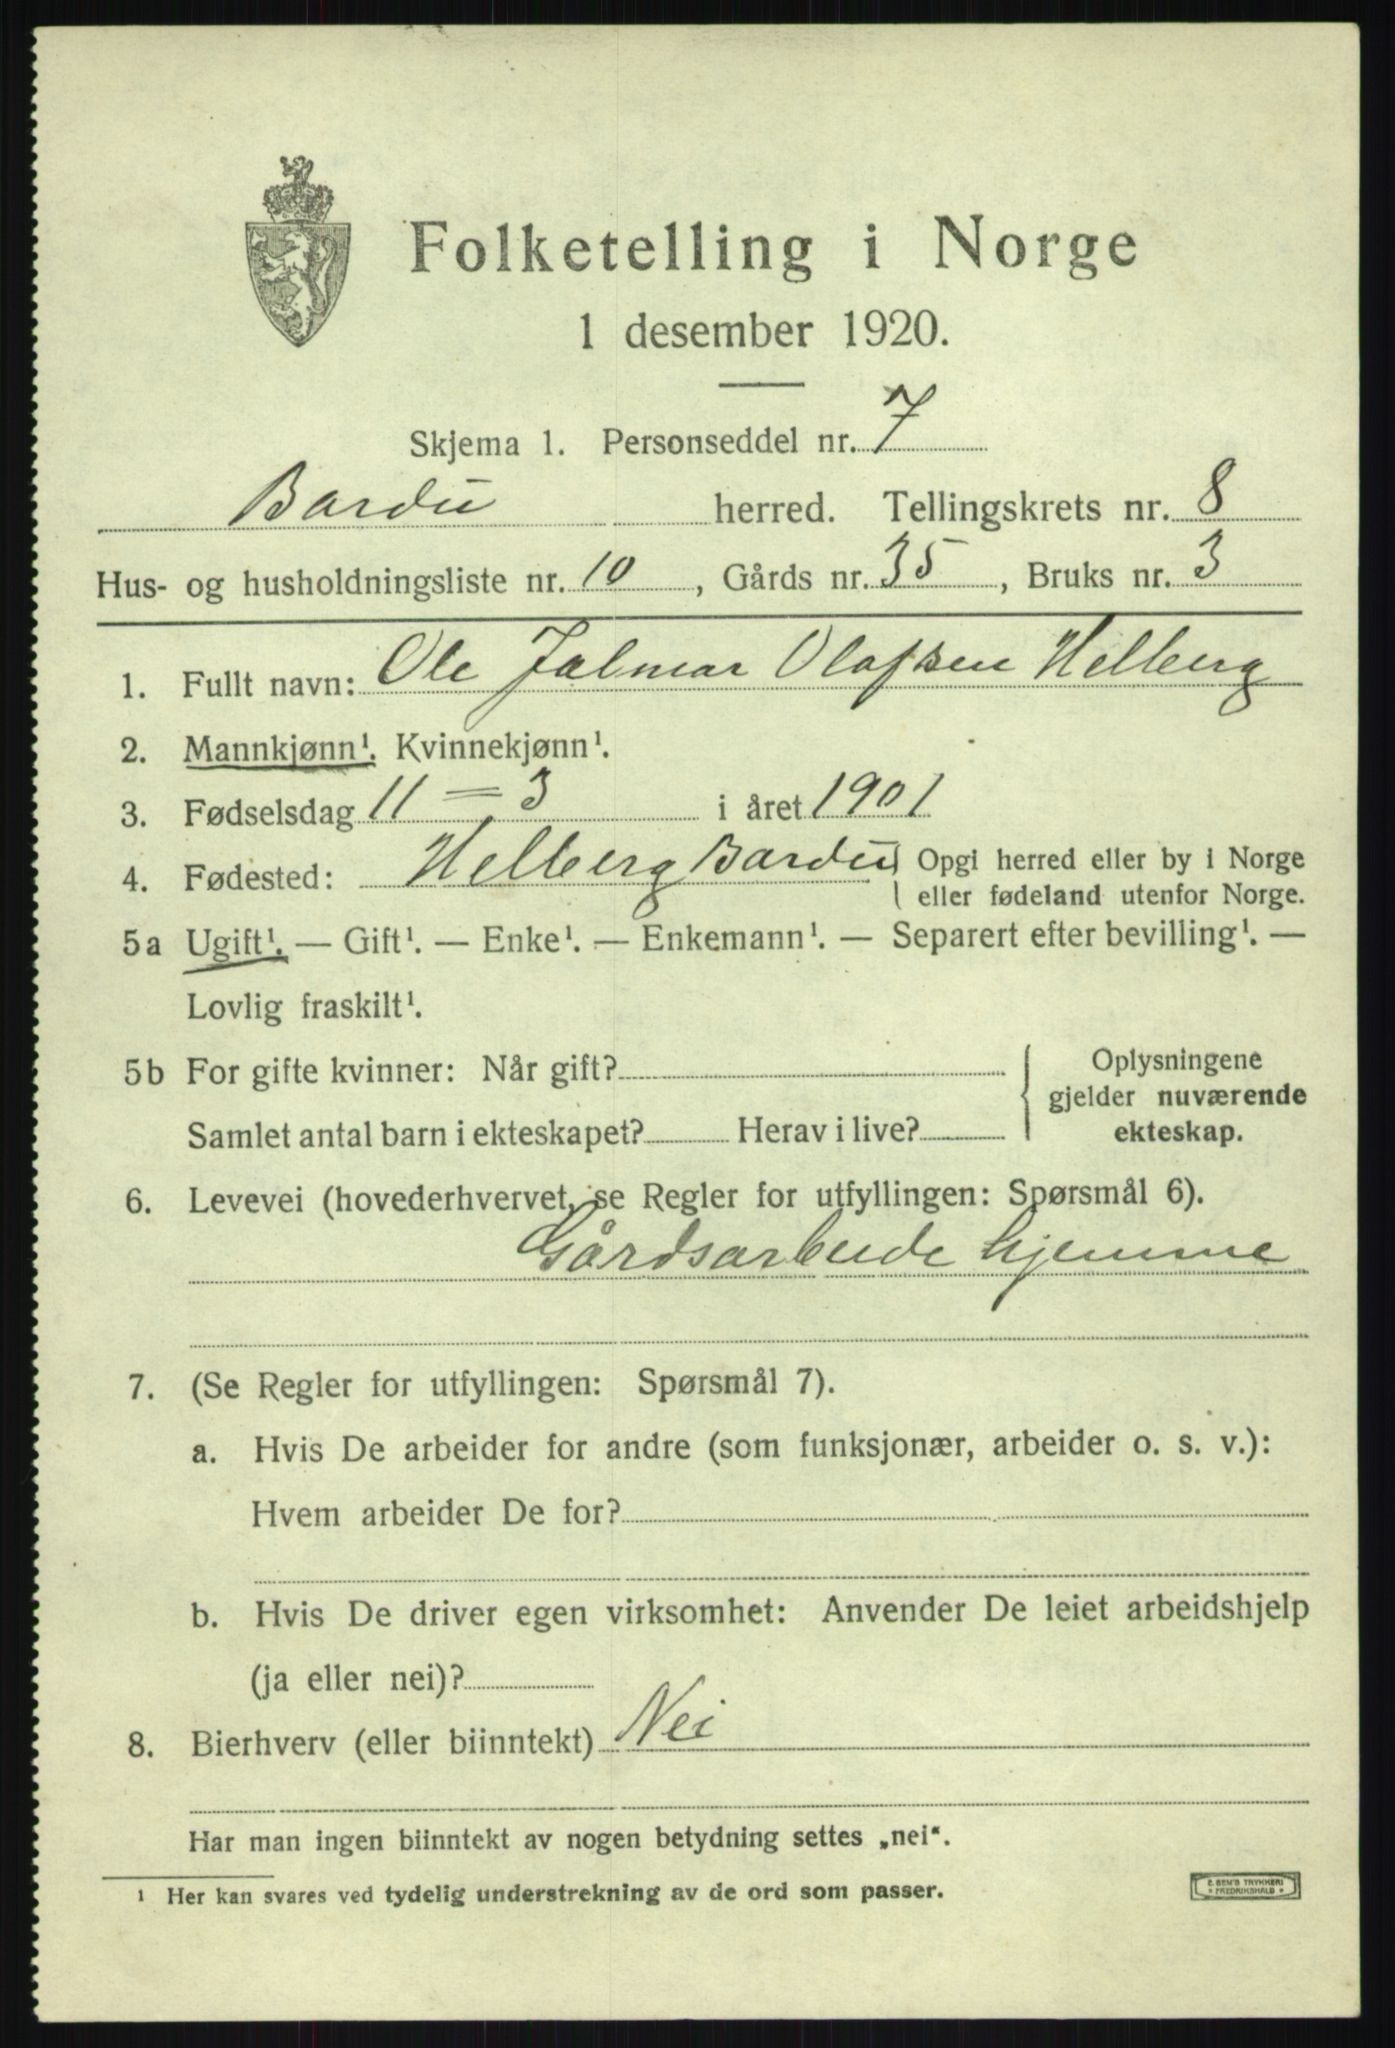 Folketelling i Norge
1 desember 1920.
Skjema 1. Personseddel nr. 7
Bardu herred. Tellingskrets nr. 8
Hus- og husholdningsliste nr. 10, Gårds nr. 35, Bruks nr. 3
1. Fullt navn: Ole Jalmar Olafsen Helberg
2. Mannkjønn¹. Kvinnekjønn¹.
3. Fødselsdag 11 = 3 i året 1901
4. Fødested: Helberg Bardu Opgi herred eller by i Norge
eller fødeland utenfor Norge.
5a Ugift¹. — Gift¹. — Enke¹. — Enkemann¹. — Separert efter bevilling¹. —
Lovlig fraskilt¹.
5b For gifte kvinner: Når gift? Oplysningene
gjelder nuværende
Samlet antal barn i ekteskapet? Herav i live? ekteskap.
6. Levevei (hovederhvervet, se Regler for utfyllingen: Spørsmål 6).
Gårdsarbeide hjemme
7. (Se Regler for utfyllingen: Spørsmål 7).
a. Hvis De arbeider for andre (som funksjonær, arbeider o. s. v.):
Hvem arbeider De for?
b. Hvis De driver egen virksomhet: Anvender De leiet arbeidshjelp
(ja eller nei)?
8. Bierhverv (eller biinntekt) Nei
Har man ingen biinntekt av nogen betydning settes „nei“.
¹ Her kan svares ved tydelig understrekning av de ord som passer.
E. SEM'S TRYKKERI
FREDRIKSHALD